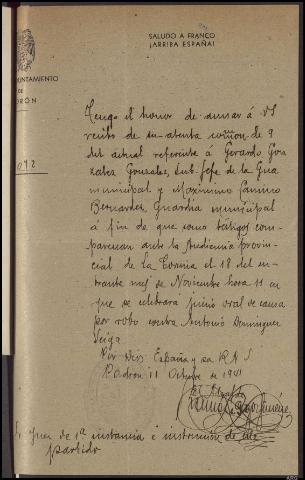 SALUDO A FRANCO
¡ARRIBA ESPAÑA!
AYUNTAMIENTO
DE
PADRÓN
Tengo el honor de acusar á VS
recibo de su atenta comon. de 9
del actual referente á Gerardo Gon
zalez Gonzalez, Sub-Jefe de la Gua
municipal y Maximino Camino
Bernardez, Guardia municipal
á fin de que como testigos com-
parezcan ante la Audiencia provin-
cial de La Coruña el 18 del en-
trante mes de Noviembre hora 11 en
que se celebrara juicio oral de causa
por robo contra Antonio Dominguez
Veiga
Por Dios España y su R N S
Padron 11 Octubre de 1941
El Alcalde
Sr Juez de 1ª instancia e instrucción de este
partido